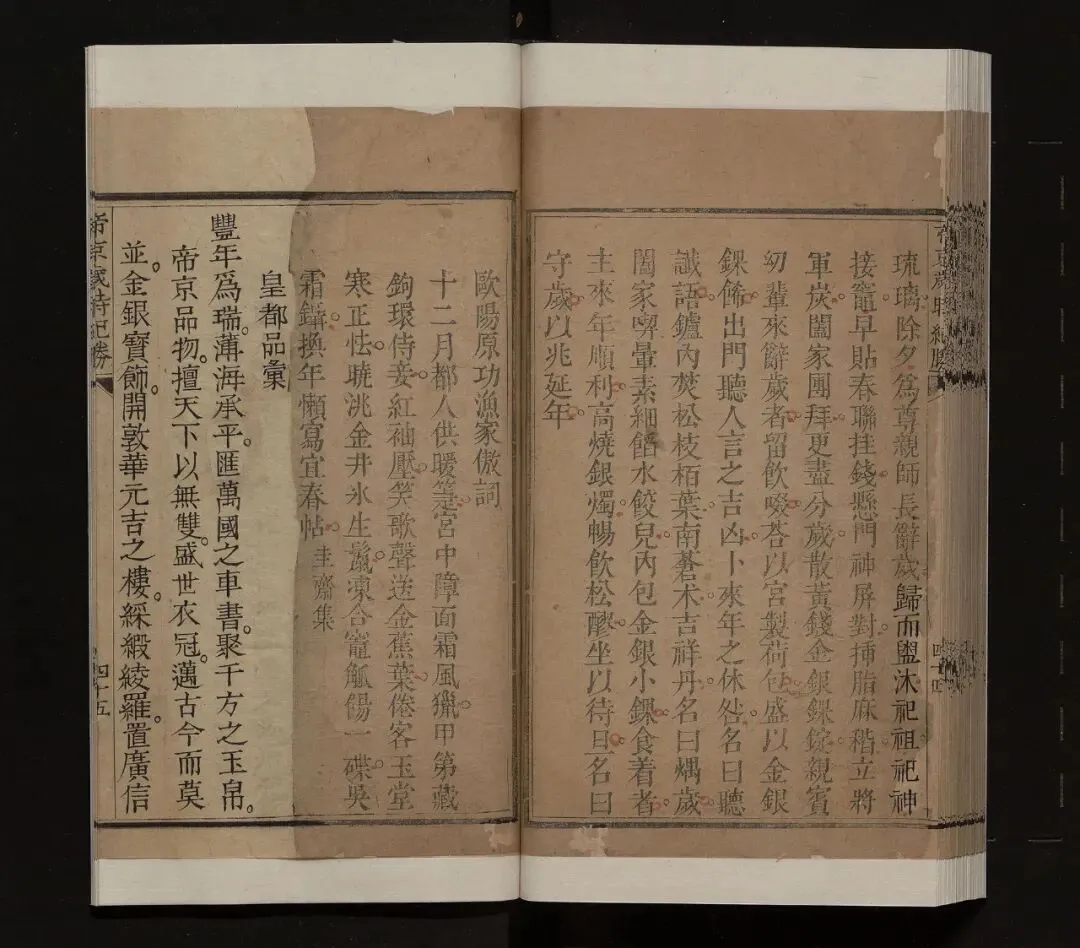 琉璃除夕爲尊親師長辭歲歸而盥沐祀祖祀神
接竈早貼春聯挂錢懸門神屏對揷脂麻稭立將
軍炭闔家團拜更盡分歲散黃錢金銀錁錠親賓
幼輩來辭歲者留飲啜荅以宮製荷包盛以金銀
錁餙出門聽人言之吉凶卜來年之休咎名曰聽
讖語鑪內焚松枝栢葉南蒼朮吉祥丹名曰煱歲
闔家喫葷素細餡水餃兒內包金銀小錁食着者
主來年順利高燒銀燭暢飲松醪坐以待旦名曰
守歲以兆延年
歐陽原功漁家傲詞
十二月都人供暖箑宮中障面霜風獵甲第藏
鉤環侍妾紅袖壓笑歌聲送金蕉葉倦客玉堂
寒正怯曉洮金井氷生鬛凍合竈觚餳一碟吳
霜鑷換年懶寫宜春帖 圭齋集
皇都品彙
豐年爲瑞薄海承平匯萬國之車書聚千方之玉帛
帝京品物擅天下以無雙盛世衣冠邁古今而莫
並金銀寶飾開敦華元吉之樓綵緞綾羅置廣信
帝京歲時紀勝
四十五